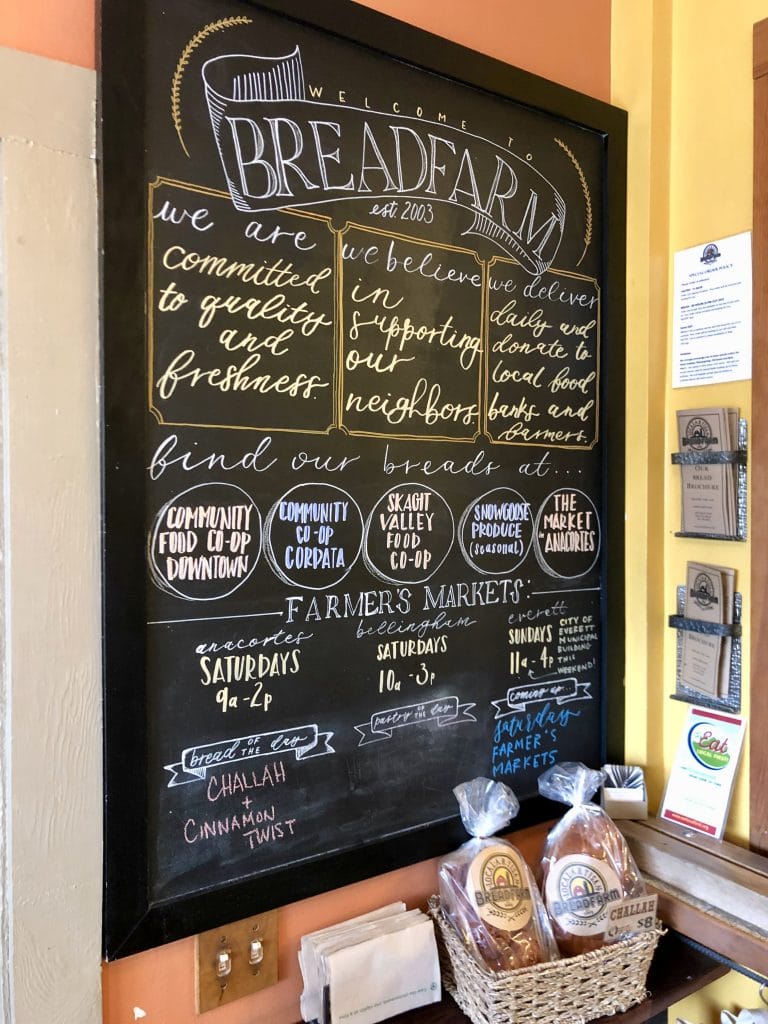 WELCOME TO
BREADFARM
est. 2003
we are
committed
to quality
and
freshness.
we believe
in
supporting
our
neighbors.
we deliver
daily and
donate to
local food
banks and
farmers.
find our breads at...
COMMUNITY
FOOD CO-OP
DOWNTOWN
COMMUNITY
CO-OP
CORDATA
SKAGIT
VALLEY
FOOD
CO-OP
SNOWGOOSE
PRODUCE
(seasonal)
THE
MARKET
in
ANACORTES
FARMER'S MARKETS:
anacortes
SATURDAYS
9a-2p
bellingham
SATURDAYS
10a-3p
everett
SUNDAYS
11a-4p
CITY OF
EVERETT
MUNICIPAL
BUILDING
THIS
WEEKEND!
bread OF THE day
CHALLAH
+
CINNAMON
TWIST
pastry OF THE day
coming up...
saturday
FARMER'S
MARKETS
SPECIAL ORDER POLICY
BREADFARM
OUR
BREAD
BROCHURE
Eat
LOCAL FIRST!
BREADFARM
BREADFARM
CHALLAH
$8